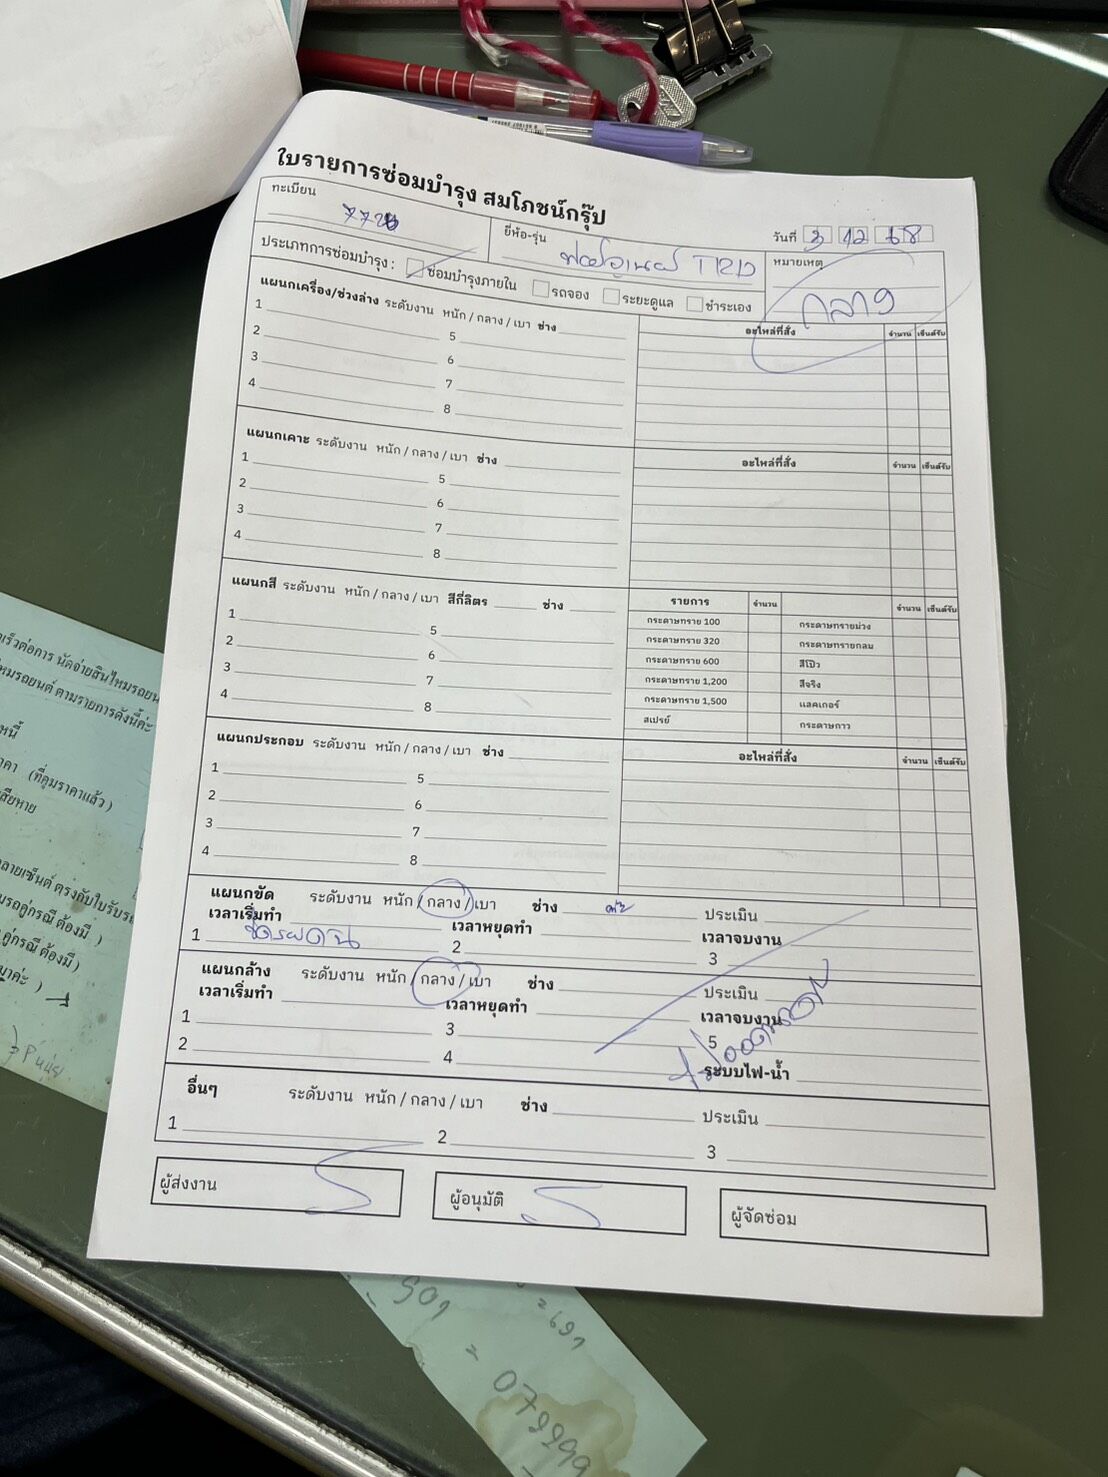 ใบรายการซ่อมบำรุง สมโภชน์กรุ๊ป
ทะเบียน
ยี่ห้อ-รุ่น ฟอร์จูนเนอร์ TRD
วันที่ 3 12 68
ประเภทการซ่อมบำรุง : ซ่อมบำรุงภายใน รถจอง ระยะดูแล ชำระเอง
หมายเหตุ
กลาง
แผนกเครื่อง/ช่วงล่าง ระดับงาน หนัก / กลาง / เบา ช่าง
อะไหล่ที่สั่ง จำนวน เซ็นต์รับ
1 5
2 6
3 7
4 8
แผนกเคาะ ระดับงาน หนัก / กลาง / เบา ช่าง
อะไหล่ที่สั่ง จำนวน เซ็นต์รับ
1 5
2 6
3 7
4 8
แผนกสี ระดับงาน หนัก / กลาง / เบา สีกี่ลิตร ช่าง
รายการ จำนวน จำนวน เซ็นต์รับ
1 5
2 6
3 7
4 8
กระดาษทราย 100 กระดาษทรายม่วง
กระดาษทราย 320 กระดาษทรายกลม
กระดาษทราย 600 สีโป๊ว
กระดาษทราย 1,200 สีจริง
กระดาษทราย 1,500 แลคเกอร์
สเปรย์ กระดาษกาว
แผนกประกอบ ระดับงาน หนัก / กลาง / เบา ช่าง
อะไหล่ที่สั่ง จำนวน เซ็นต์รับ
1 5
2 6
3 7
4 8
แผนกขัด ระดับงาน หนัก / กลาง / เบา ช่าง ประเมิน
เวลาเริ่มทำ เวลาหยุดทำ เวลาจบงาน
1 2 3
แผนกล้าง ระดับงาน หนัก / กลาง / เบา ช่าง ประเมิน
เวลาเริ่มทำ เวลาหยุดทำ เวลาจบงาน
1 3 5
2 4 ระบบไฟ-น้ำ
อื่นๆ ระดับงาน หนัก / กลาง / เบา ช่าง ประเมิน
1 2 3
ผู้ส่งงาน
ผู้อนุมัติ
ผู้จัดซ่อม